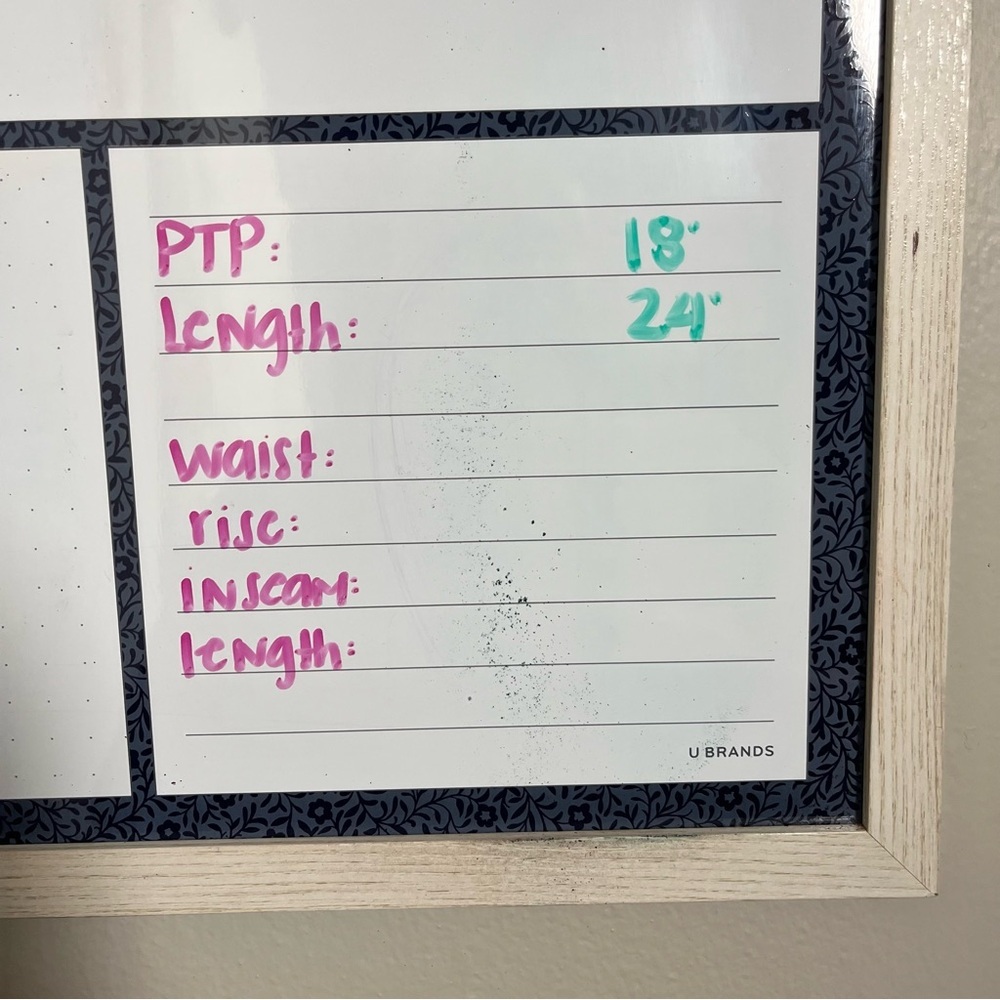 PTP: 18"
Length: 24"
waist:
rise:
inseam:
length:
U BRANDS